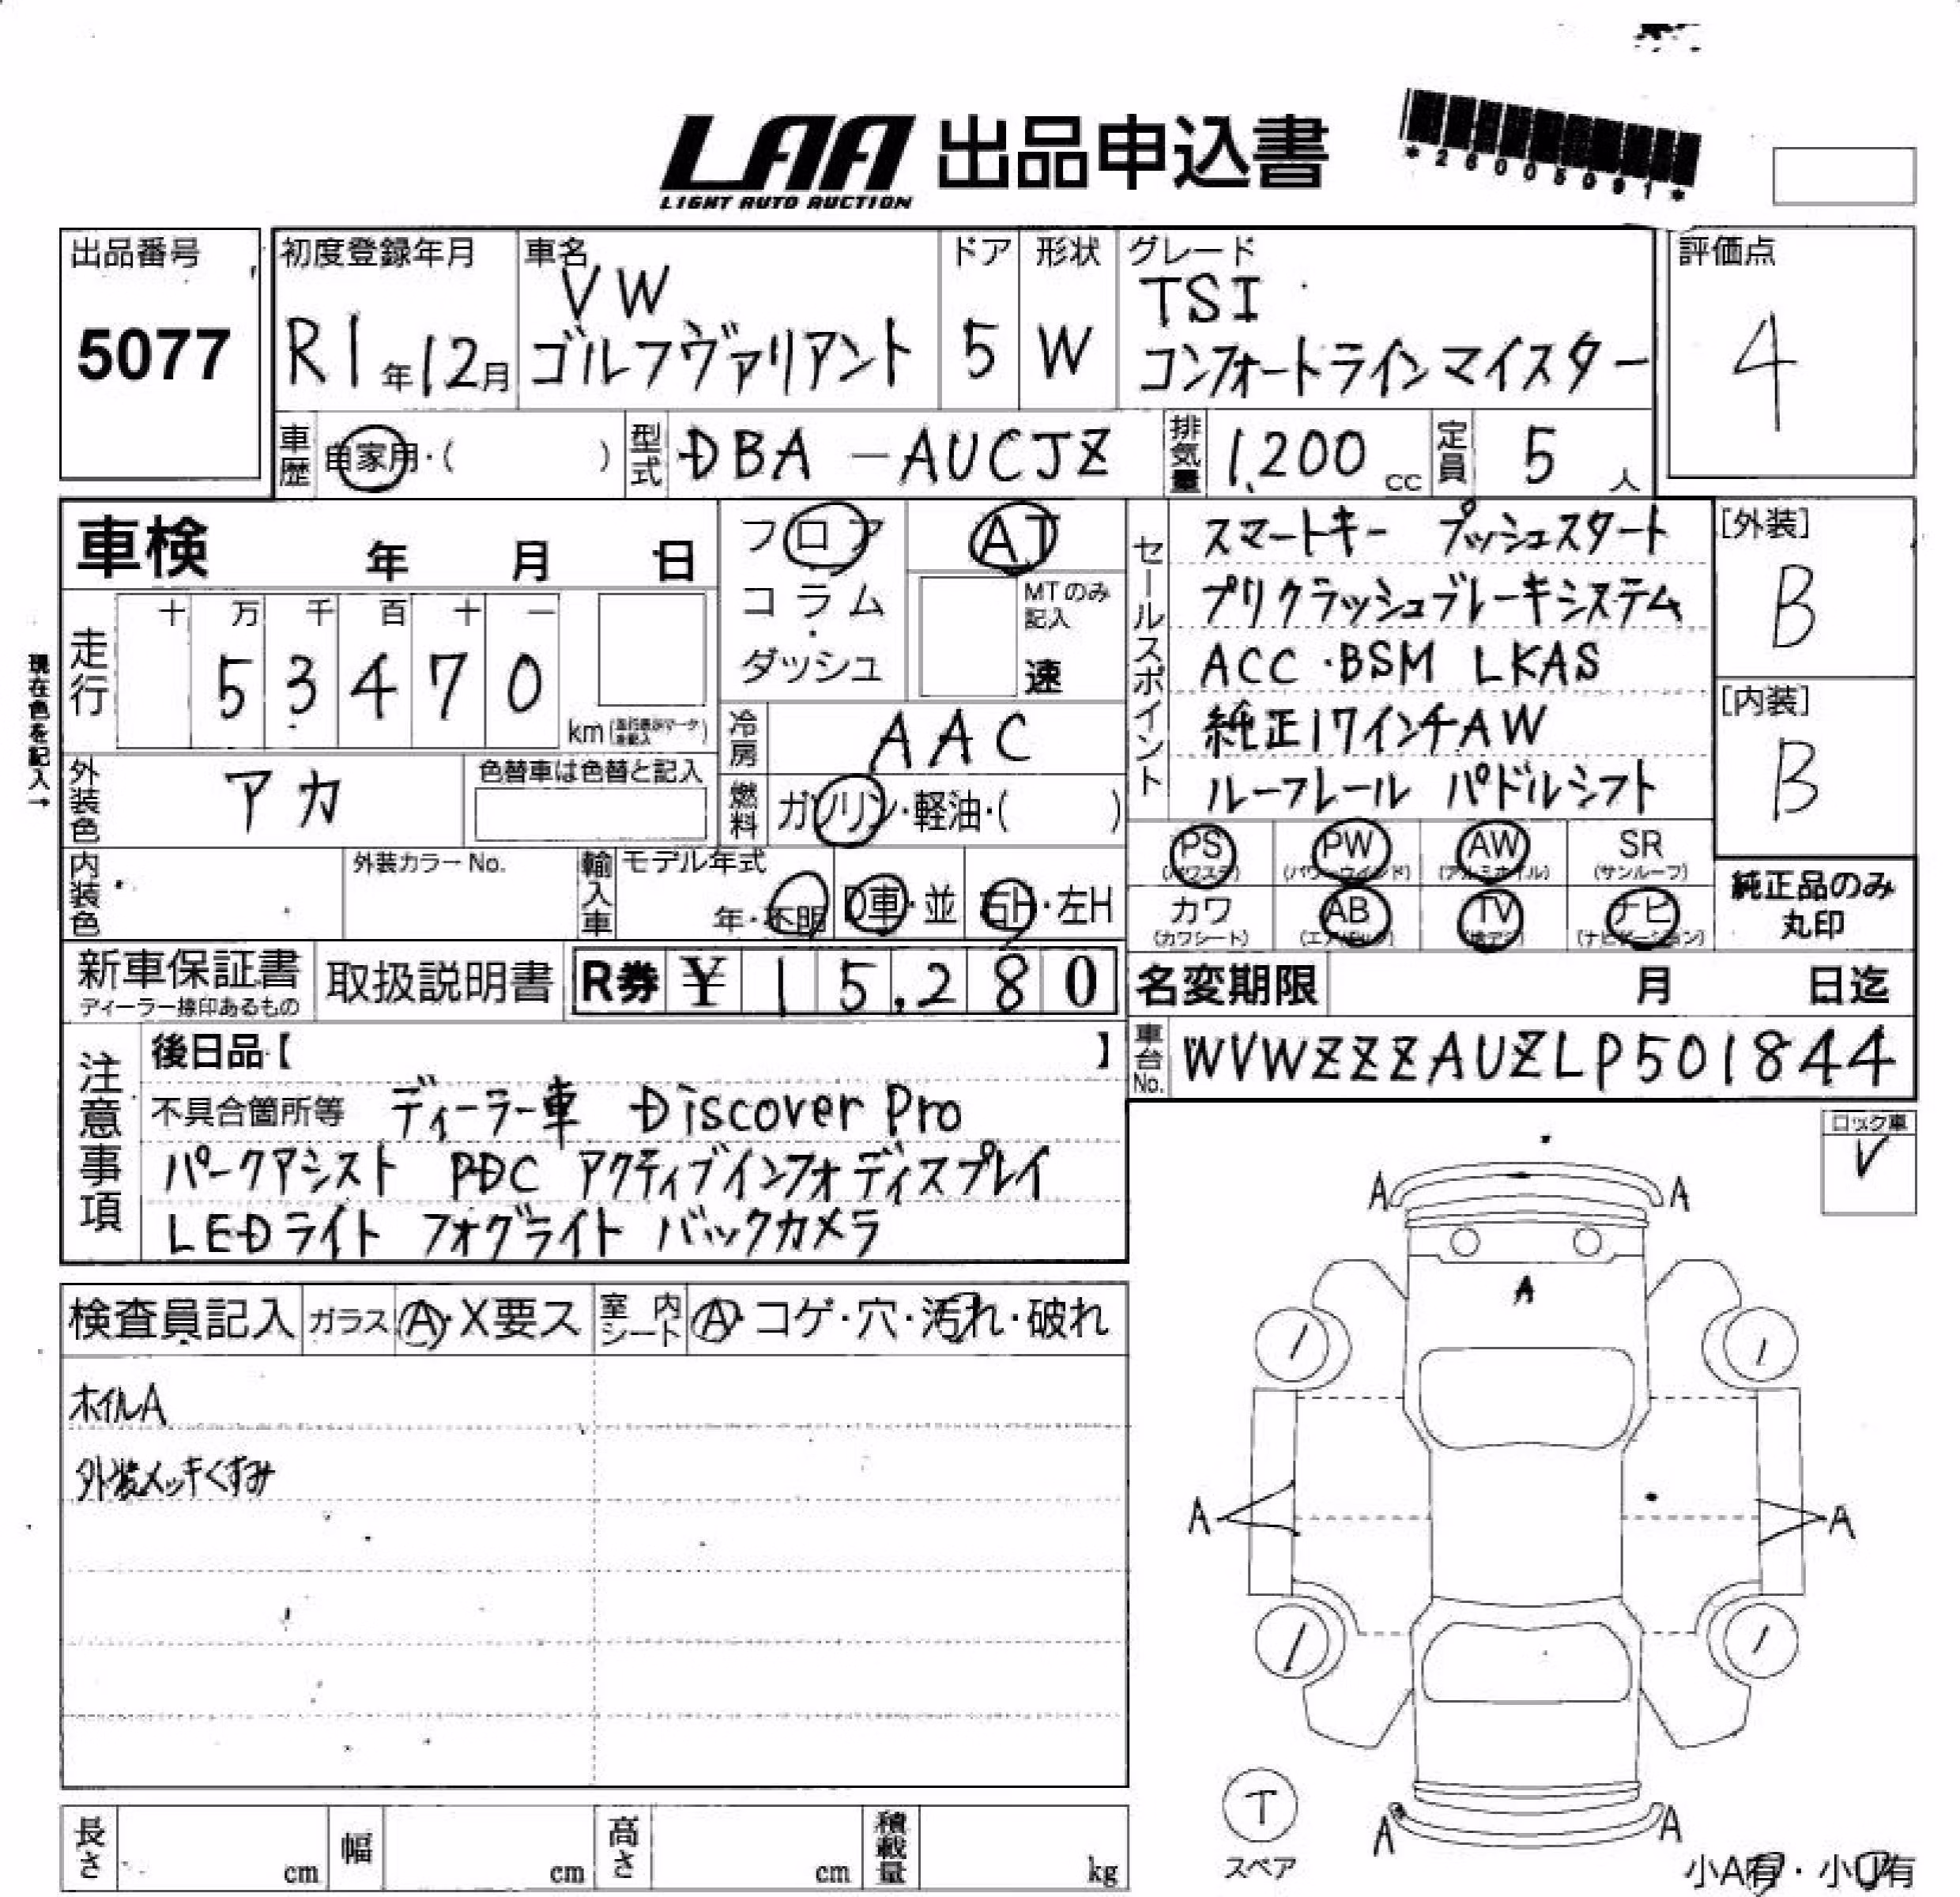 LAA 出品申込書
LIGHT AUTO AUCTION
*26005091*
出品番号
5077
初度登録年月
R1年12月
車名
VW
ゴルフヴァリアント
ドア
5
形状
W
グレード
TSI
コンフォートラインマイスター
評価点
4
車歴 自家用・( )
型式 DBA-AUCJZ
排気量 1,200 cc
定員 5 人
車検 年 月 日
フロア
コラム
ダッシュ
AT
MTのみ記入
速
走行
十 万 千 百 十 一
5 3 4 7 0
km
現在色を記入→
冷房 AAC
外装色 アカ
色替車は色替と記入
燃料 ガソリン・軽油・( )
内装色
外装カラーNo.
輸入車
モデル年式
年・不明
D車・並
右H・左H
セールスポイント
スマートキー プッシュスタート
プリクラッシュブレーキシステム
ACC・BSM LKAS
純正17インチAW
ルーフレール パドルシフト
[外装]
B
[内装]
B
PS PW AW SR
(パワステ) (パワーウインド) (アルミホイル) (サンルーフ)
カワ AB TV ナビ
(カワシート) (エアバック) (地デジ) (ナビゲーション)
純正品のみ
丸印
新車保証書
ディーラー捺印あるもの
取扱説明書
R券 ¥ 15,280
名変期限 月 日迄
車台No. WVWZZZAUZLP501844
注意事項
後日品【 】
不具合箇所等 ディーラー車 Discover Pro
パークアシスト PDC アクティブインフォディスプレイ
LEDライト フォグライト バックカメラ
ロック車
検査員記入
ガラス A・X要ス
室内シート A・コゲ・穴・汚れ・破れ
ホイルA
外装メッキくすみ
A A
A
A A
T
スペア
A A
小A有・小U有
長さ cm
幅 cm
高さ cm
積載量 kg